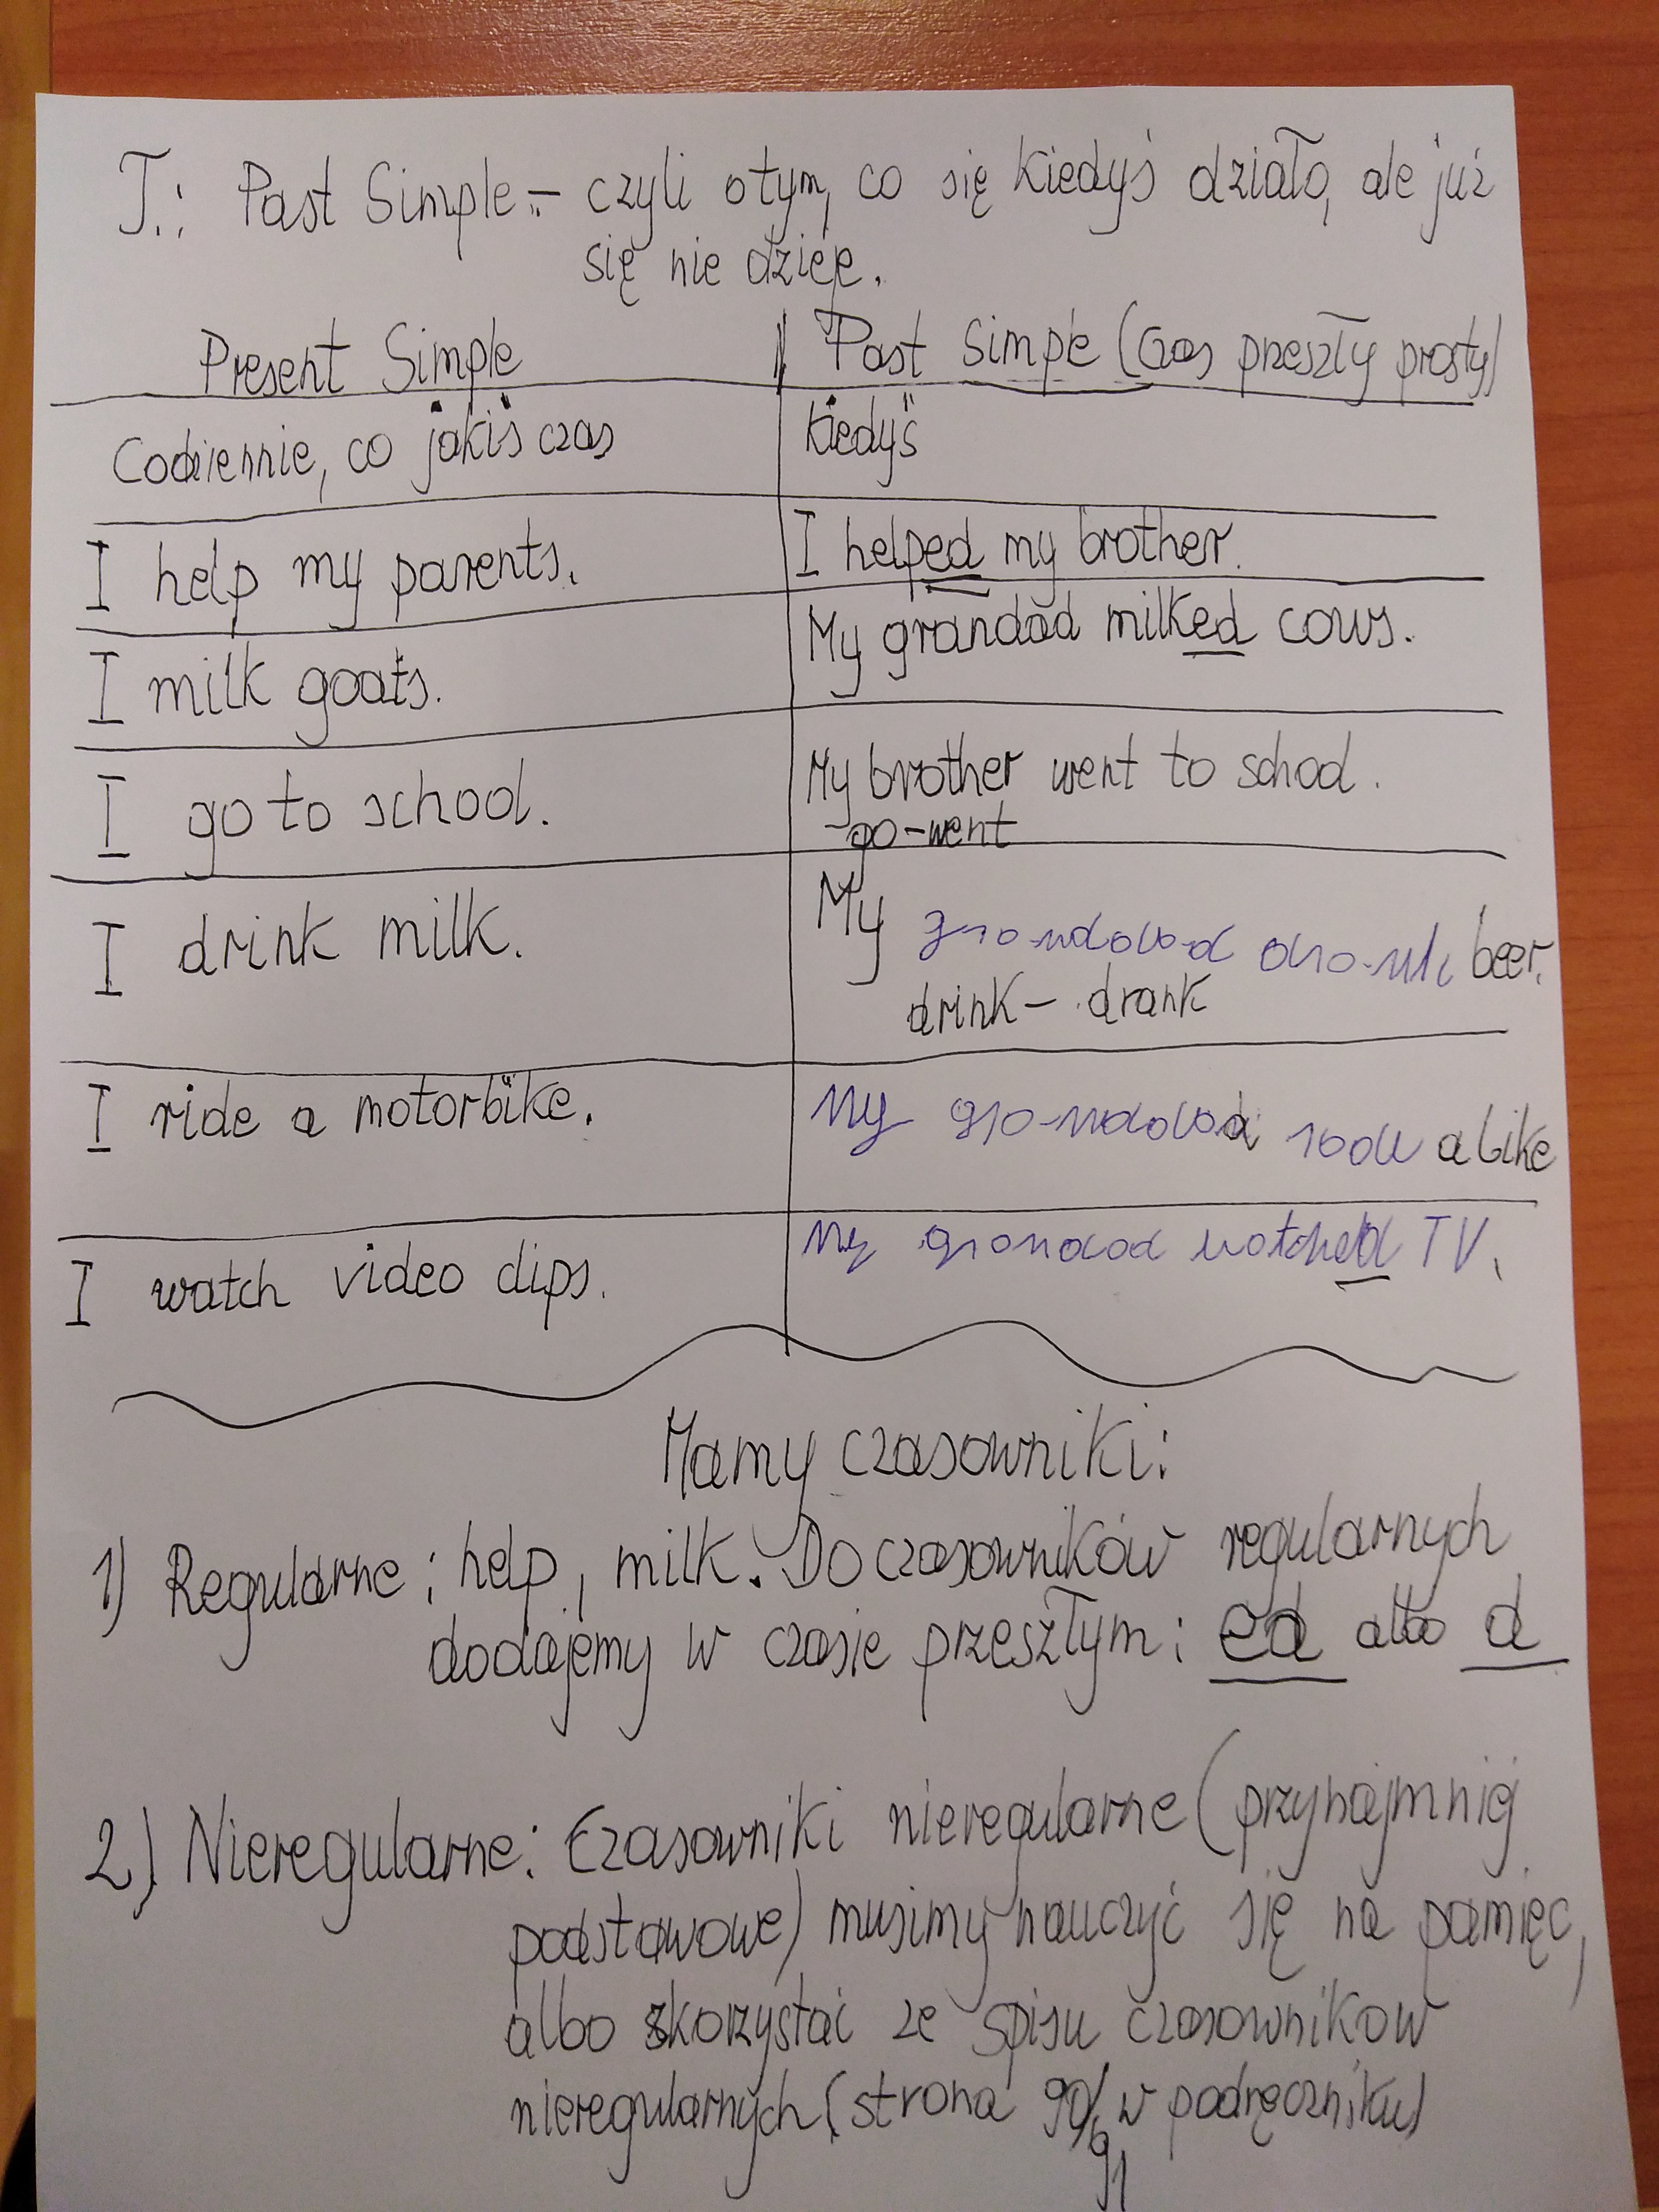 T.: Past Simple - czyli o tym, co się kiedyś działo, ale już
się nie dzieje.
Present Simple
Past Simple (czas przeszły prosty)
Codziennie, co jakiś czas
kiedyś
I help my parents.
I helped my brother.
I milk goats.
My grandad milked cows.
I go to school.
My brother went to school.
go - went
I drink milk.
My grandad drank beer.
drink - drank
I ride a motorbike.
My grandad rode a bike
I watch video clips.
My grandad watched TV.
Mamy czasowniki:
1) Regularne: help, milk. Do czasowników regularnych
dodajemy w czasie przeszłym: ed albo d
2) Nieregularne: Czasowniki nieregularne (przynajmniej
podstawowe) musimy nauczyć się na pamięć,
albo skorzystać ze spisu czasowników
nieregularnych (strona 90/91 w podręczniku)